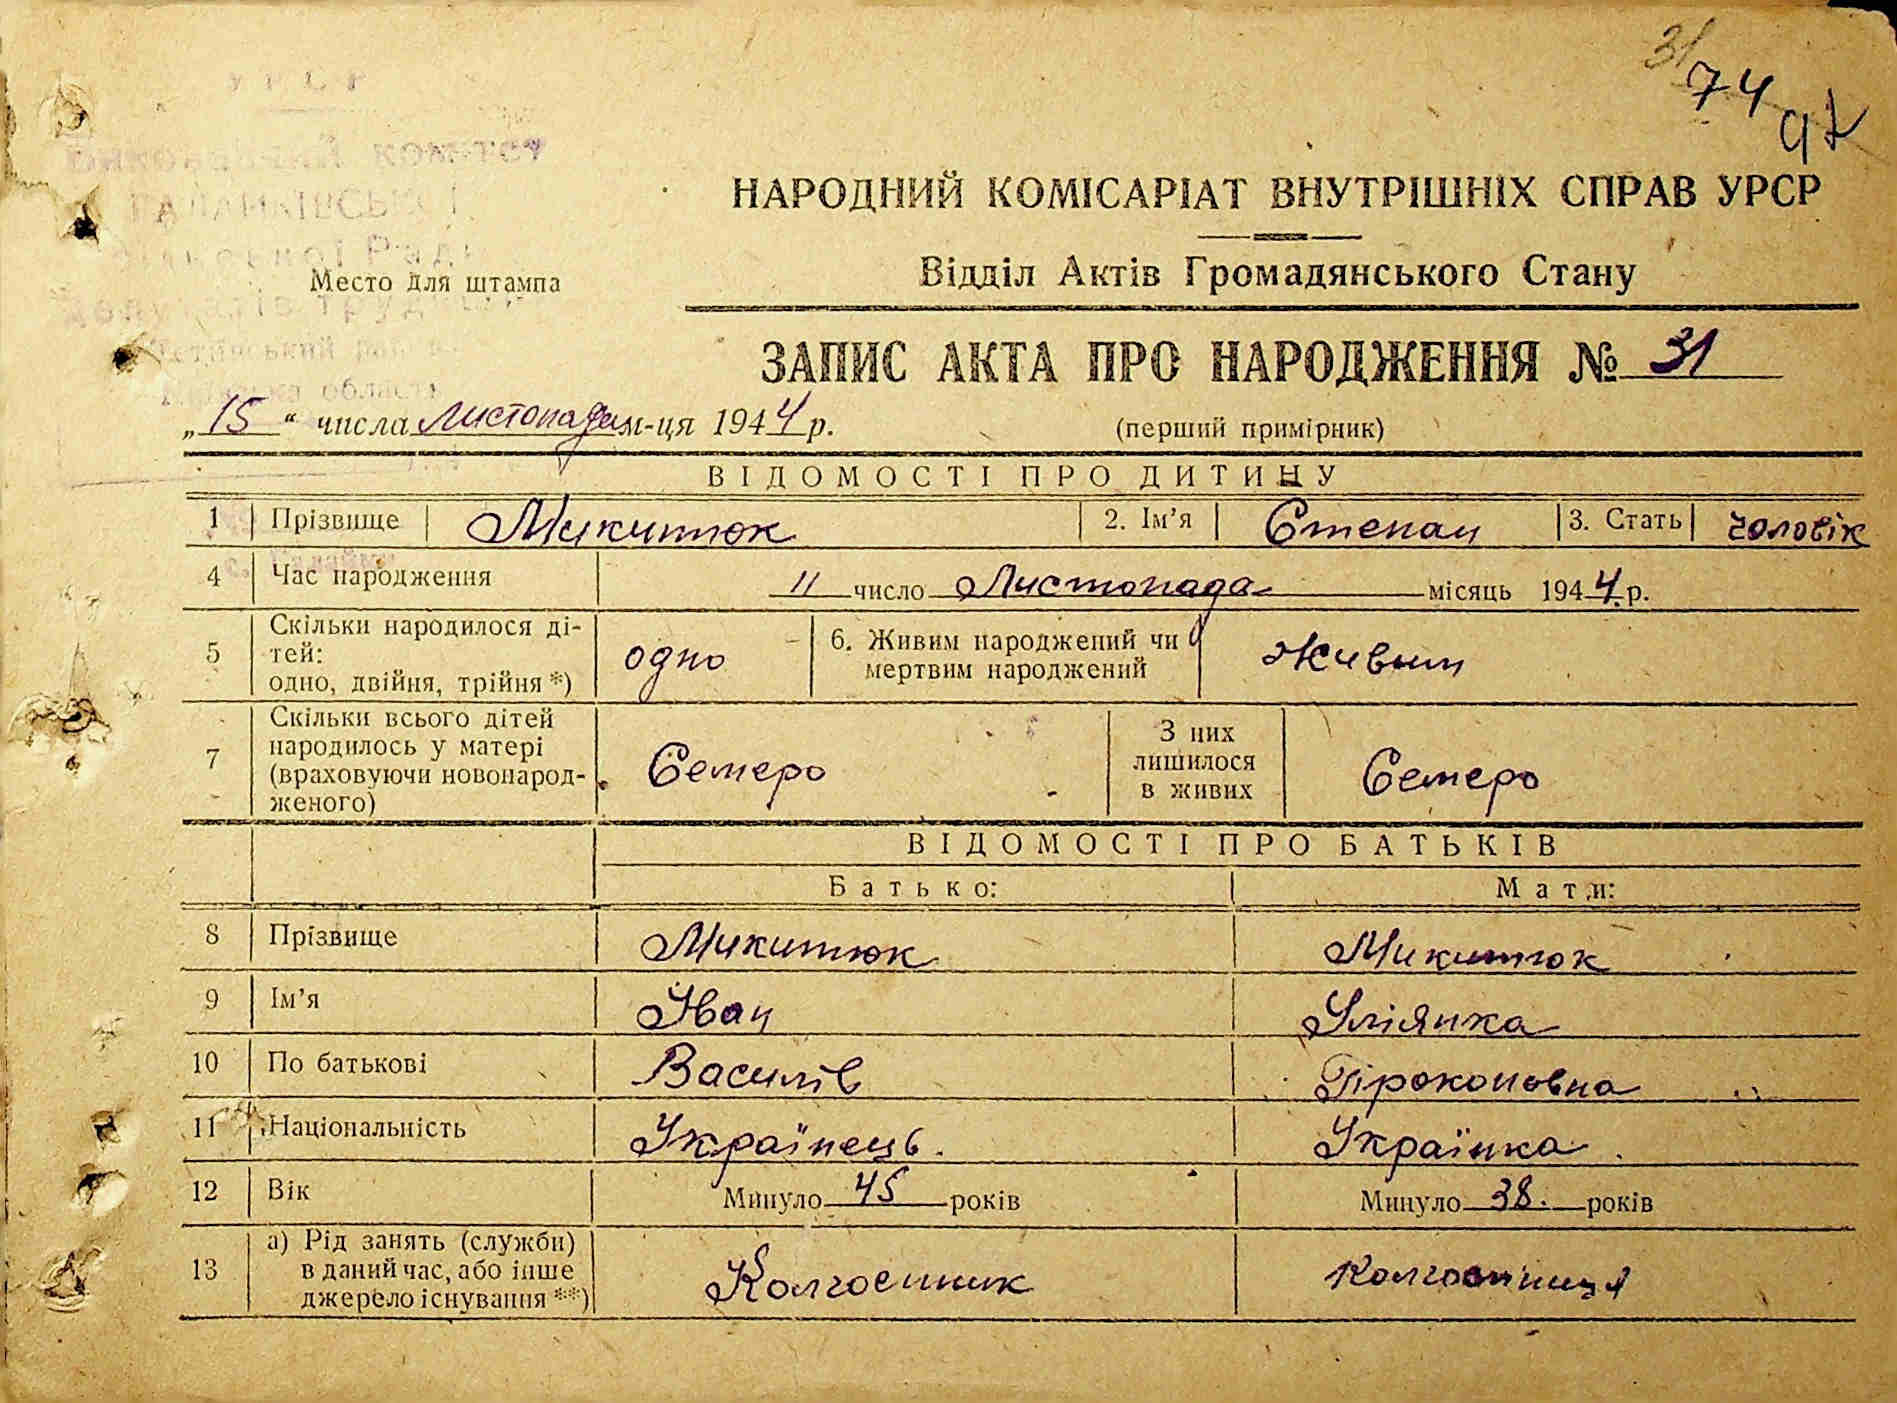 31
74
97
УРСР
НАРОДНИЙ КОМІСАРІАТ ВНУТРІШНІХ СПРАВ УРСР
Відділ Актів Громадянського Стану
Место для штампа
ЗАПИС АКТА ПРО НАРОДЖЕННЯ № 31
„15“ числа Листопада м-ця 1944 р. (перший примірник)
ВІДОМОСТІ ПРО ДИТИНУ
1 Прізвище Микитюк 2. Ім’я Степан 3. Стать чоловік
4 Час народження 11 число Листопада місяць 1944 р.
5 Скільки народилося ді-
тей:
одно, двійня, трійня *) одно 6. Живим народжений чи
мертвим народжений Живим
7 Скільки всього дітей
народилось у матері
(враховуючи новонарод-
женого) Семеро З них
лишилося
в живих Семеро
ВІДОМОСТІ ПРО БАТЬКІВ
Батько: Мати:
8 Прізвище Микитюк Микитюк
9 Ім’я Іван Уліянка
10 По батькові Василів Прокоповна
11 Національність Українець. Українка.
12 Вік Минуло 45 років Минуло 38. років
13 а) Рід занять (служби)
в даний час, або інше
джерело існування **) Колгоспник Колгоспниця